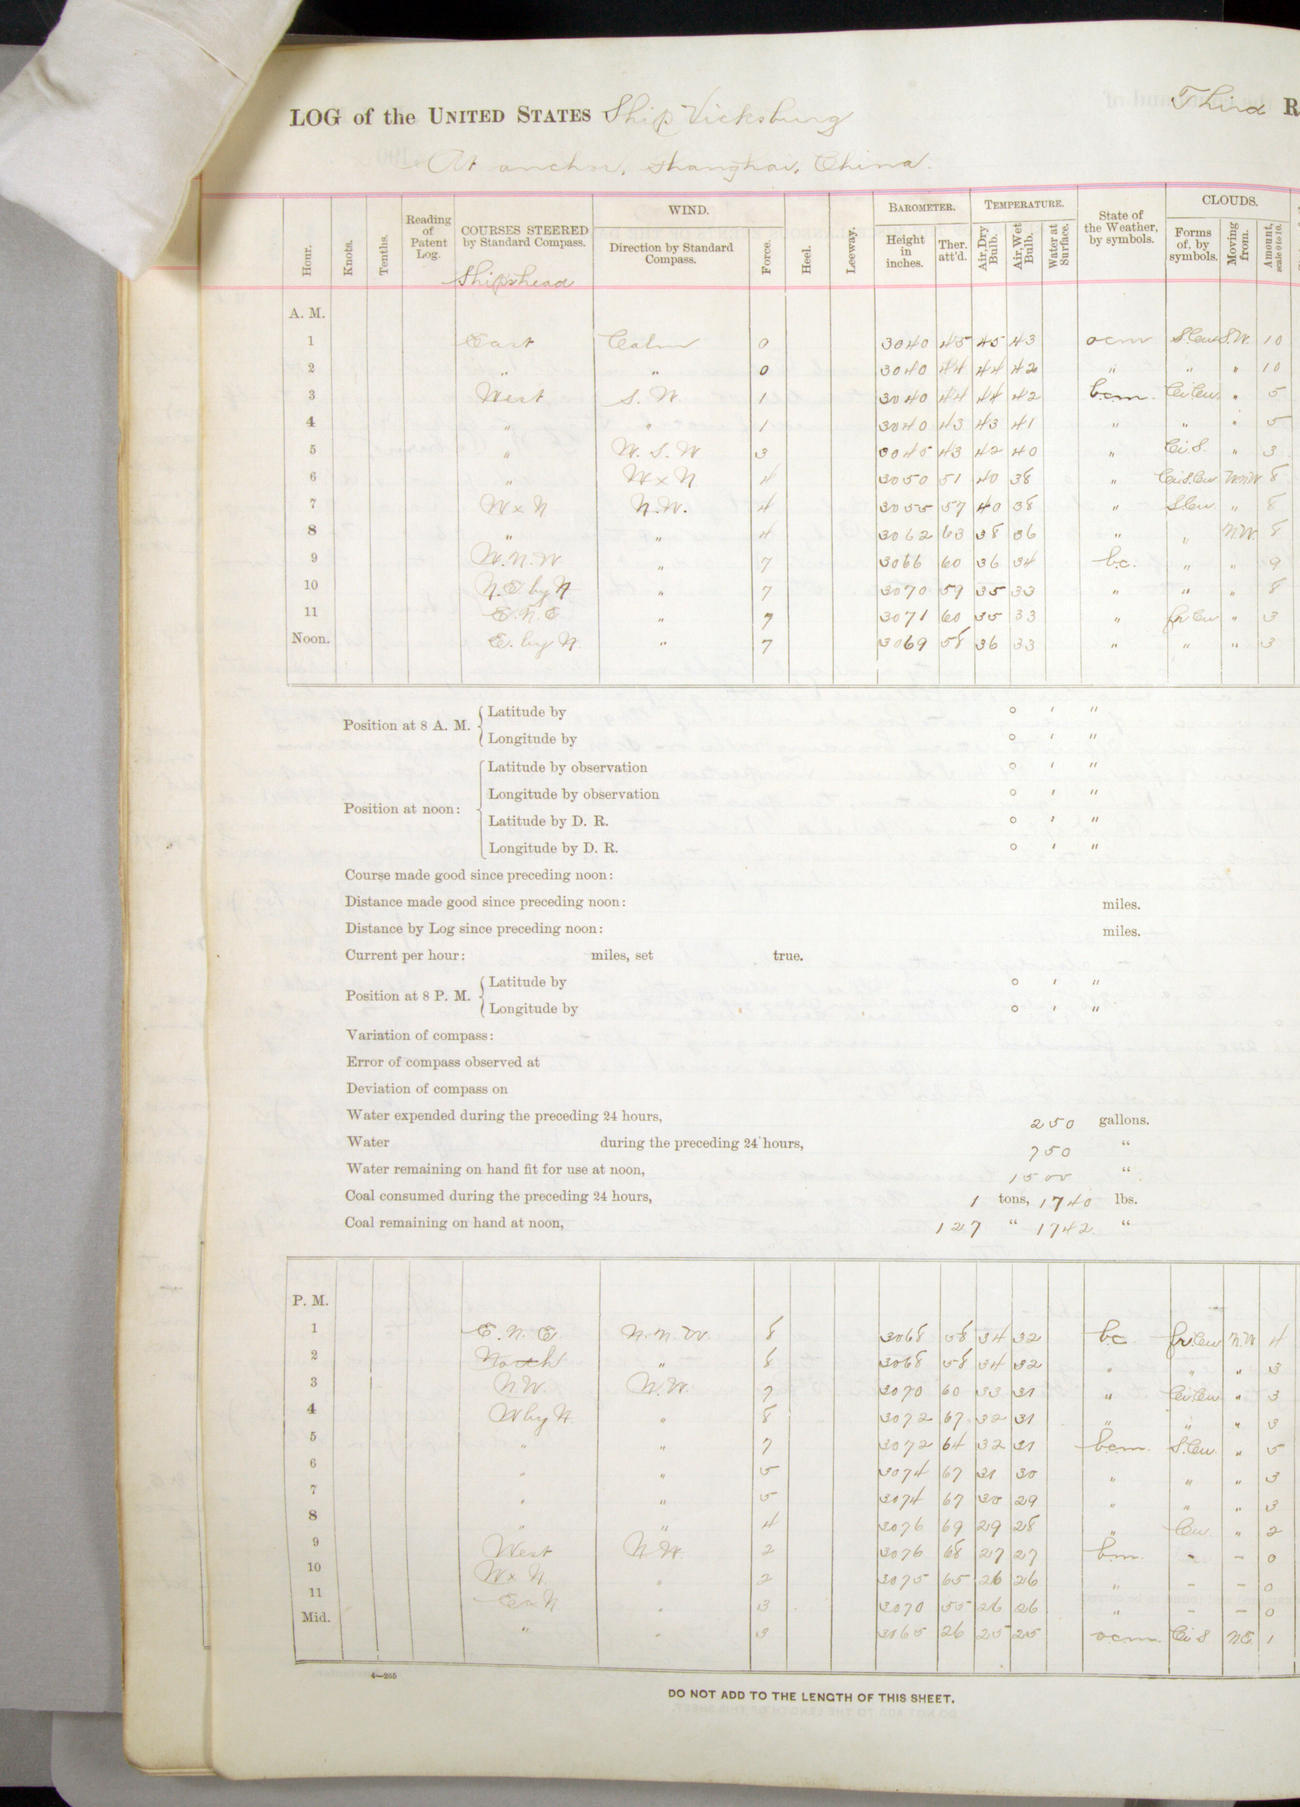 LOG of the UNITED STATES Ship Vicksburg Third R
At anchor, Shanghai, China.
Hour. Knots. Tenths. Reading of Patent Log. COURSES STEERED by Standard Compass. WIND. Direction by Standard Compass. Force. Heel. Leeway. BAROMETER. Height in inches. Ther. att'd. TEMPERATURE. Air, Dry Bulb. Air, Wet Bulb. Water at Surface. State of the Weather, by symbols. CLOUDS. Forms of, by symbols. Moving from. Amount, scale 0 to 10.
Ship's head
A. M.
1 East Calm 0 3040 45 45 43 ocm S.Cu S.W. 10
2 " " 0 3040 44 44 42 " " " 10
3 West S.W 1 3040 44 44 42 bcm. Ci.Cu " 5
4 " " 1 3040 43 43 41 " " " 5
5 " W.S.W 3 3045 43 42 40 " Ci.S. " 3
6 " W x N 4 3050 51 40 38 " Ci.S.Cu WNW 8
7 W x N N.W. 4 3055 57 40 38 " S.Cu. " 8
8 " " 4 3062 63 38 36 " " N.W. 8
9 W.N.W " 7 3066 60 36 34 bc. " " 9
10 N.E by N " 7 3070 59 35 33 " " " 8
11 E.N.E " 7 3071 60 35 33 " fr Cu " 3
Noon. E. by N. " 7 3069 58 36 33 " " " 3
Position at 8 A. M. Latitude by ° ' "
Longitude by ° ' "
Position at noon: Latitude by observation ° ' "
Longitude by observation ° ' "
Latitude by D. R. ° ' "
Longitude by D. R. ° ' "
Course made good since preceding noon:
Distance made good since preceding noon: miles.
Distance by Log since preceding noon: miles.
Current per hour: miles, set true.
Position at 8 P. M. Latitude by ° ' "
Longitude by ° ' "
Variation of compass:
Error of compass observed at
Deviation of compass on
Water expended during the preceding 24 hours, 250 gallons.
Water during the preceding 24 hours, 750 "
Water remaining on hand fit for use at noon, 1500 "
Coal consumed during the preceding 24 hours, 1 tons, 1740 lbs.
Coal remaining on hand at noon, 127 " 1742 "
P. M.
1 E.N.E N.N.W. 8 3068 58 34 32 bc fr.Cu N.W 4
2 North " 8 3068 58 34 32 " " " 3
3 N.W. N.W. 7 3070 60 33 31 " Ci.Cu " 3
4 W by N " 8 3072 67 32 31 " " " 3
5 " " 7 3072 64 32 31 bcm. S.Cu. " 5
6 " " 5 3074 67 31 30 " " " 3
7 " " 5 3074 67 30 29 " " " 3
8 " " 4 3076 69 29 28 " Cu. " 2
9 West N.W. 2 3076 68 27 27 bm. - - 0
10 W x N. " 2 3075 65 26 26 " - - 0
11 E x N " 3 3070 55 26 26 " - - 0
Mid. " " 3 3065 26 25 25 ocm. Ci S N.E. 1
4—265
DO NOT ADD TO THE LENGTH OF THIS SHEET.